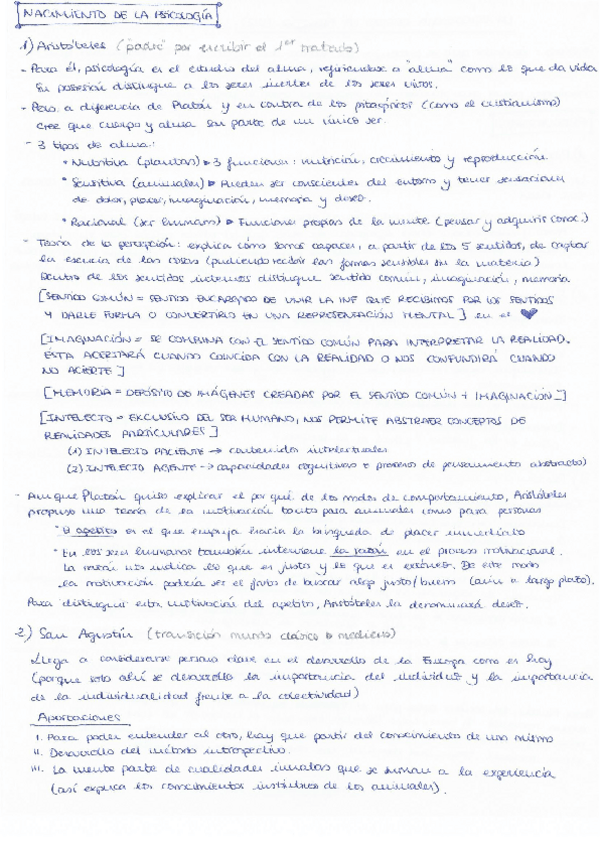 NACIMIENTO DE LA PSICOLOGÍA
1) Aristóteles ("padre" por escribir el 1er tratado)
- Para él, psicología es el estudio del alma, refiriéndose a "alma" como lo que da vida
Su posesión distingue a los seres inertes de los seres vivos.
- Pero a diferencia de Platón y en contra de los pitagóricos (como el cristianismo)
cree que cuerpo y alma son parte de un único ser.
- 3 tipos de alma:
* Nutritiva (plantas) ▷ 3 funciones: nutrición, crecimiento y reproducción.
* Sensitiva (animales) ▷ Pueden ser conscientes del entorno y tener sensaciones
de dolor, placer, imaginación, memoria y deseo.
* Racional (ser humano) ▷ Funciones propias de la mente. (pensar y adquirir conoc.)
- Teoría de la percepción: explica cómo somos capaces, a partir de los 5 sentidos, de captar
la esencia de las cosas (pudiendo recibir las formas sensibles sin la materia)
Dentro de los sentidos internos distingue sentido común, imaginación, memoria
[SENTIDO COMÚN = SENTIDO ENCARGADO DE UNIR LA INF QUE RECIBIMOS POR LOS SENTIDOS
Y DARLE FORMA O CONVERTIRLO EN UNA REPRESENTACIÓN MENTAL] en el ♥
[IMAGINACIÓN = SE COMBINA CON EL SENTIDO COMÚN PARA INTERPRETAR LA REALIDAD.
ÉSTA ACERTARÁ CUANDO COINCIDA CON LA REALIDAD O NOS CONFUNDIRÁ CUANDO
NO ACIERTE]
[MEMORIA = DEPÓSITO DE IMÁGENES CREADAS POR EL SENTIDO COMÚN + IMAGINACIÓN]
[INTELECTO = EXCLUSIVO DEL SER HUMANO, NOS PERMITE ABSTRAER CONCEPTOS DE
REALIDADES PARTICULARES]
(1) INTELECTO PACIENTE → contenidos intelectuales
(2) INTELECTO AGENTE → capacidades cognitivas o procesos de pensamiento abstracto)
- Aunque Platón quiso explicar el por qué de los modos de comportamiento, Aristóteles
propuso una teoría de la motivación tanto para animales como para personas
* El apetito es el que empuja hacia la búsqueda de placer inmediato
* En los seres humanos también interviene la razón en el proceso motivacional.
La razón nos indica lo que es justo y lo que es erróneo. De este modo
la motivación podría ser el fruto de buscar algo justo/bueno (aún a largo plazo).
Para distinguir esta motivación del apetito, Aristóteles la denominará deseo.
2) San Agustín (transición mundo clásico a medievo)
Llega a considerarse persona clave en el desarrollo de la Europa como es hoy
(porque solo ahí se desarrolló la importancia del individuo y la importancia
de la individualidad frente a la colectividad)
Aportaciones
I. Para poder entender al otro, hay que partir del conocimiento de uno mismo
II. Desarrollo del método introspectivo.
III. La mente parte de cualidades innatas que se suman a la experiencia
(así explica los conocimientos instintivos de los animales).